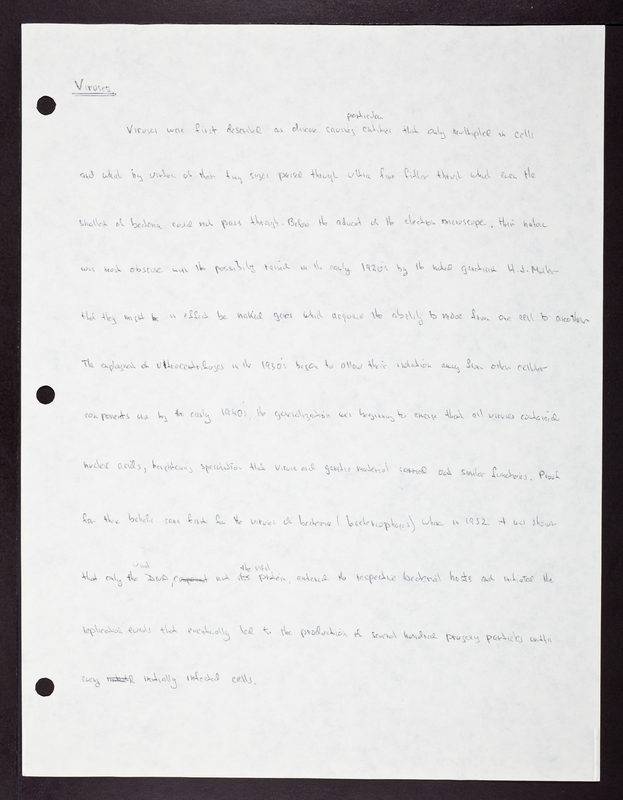 Viruses
particular
Viruses were first described as disease causing entities that only multiplied in cells
and which by virtue of their tiny sizes passed through ultra fine filters through which even the
smallest of bacteria could not pass through. Before the advent of the electron microscope, their nature
was most obscure with the possibility raised in the early 1920's by the noted geneticist H. J. Muller
that they might be in effect be naked genes which acquire the ability to move from one cell to another
The of ultracentrifuges in the 1930's began to allow their isolation away from other cellular
components and by the early 1940's the generalization was beginning to emerge that all viruses contained
nucleic acids, speculation that viruses and genetic material carried out similar functions. Proof
for these beliefs came first for the viruses of bacteria (bacteriophages) when in 1952 it was shown
viral the viral
that only the DNA, not its protein, entered the respective bacterial hosts and initiated the
replication events that eventually led to the production of several hundred progeny particles within
every initially infected cells.